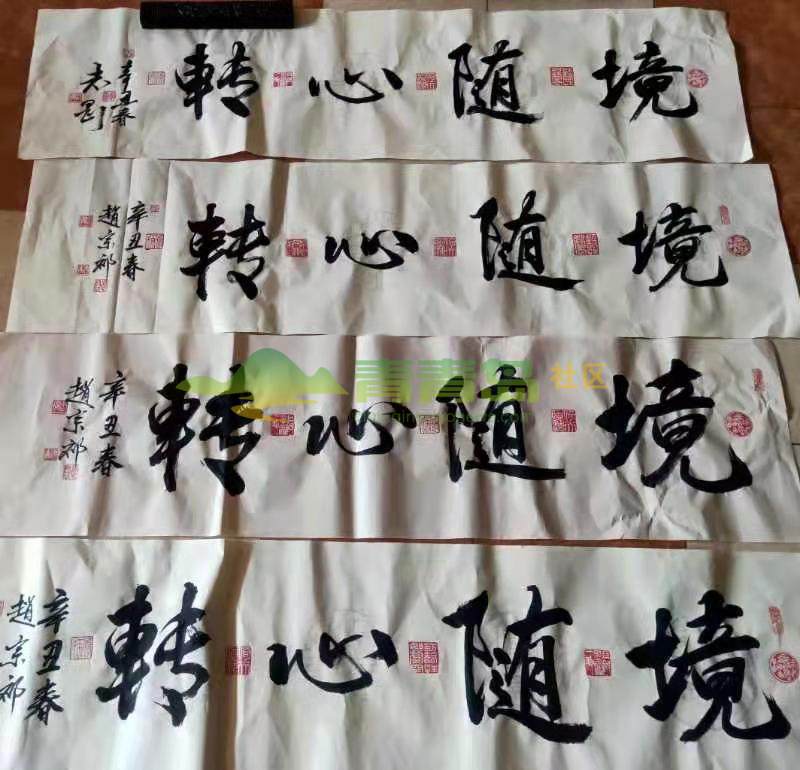 境随心轉
辛丑春
境随心轉
辛丑春
趙宗祁
境随心轉
辛丑春
趙宗祁
青青岛社区
境随心轉
辛丑春
趙宗祁